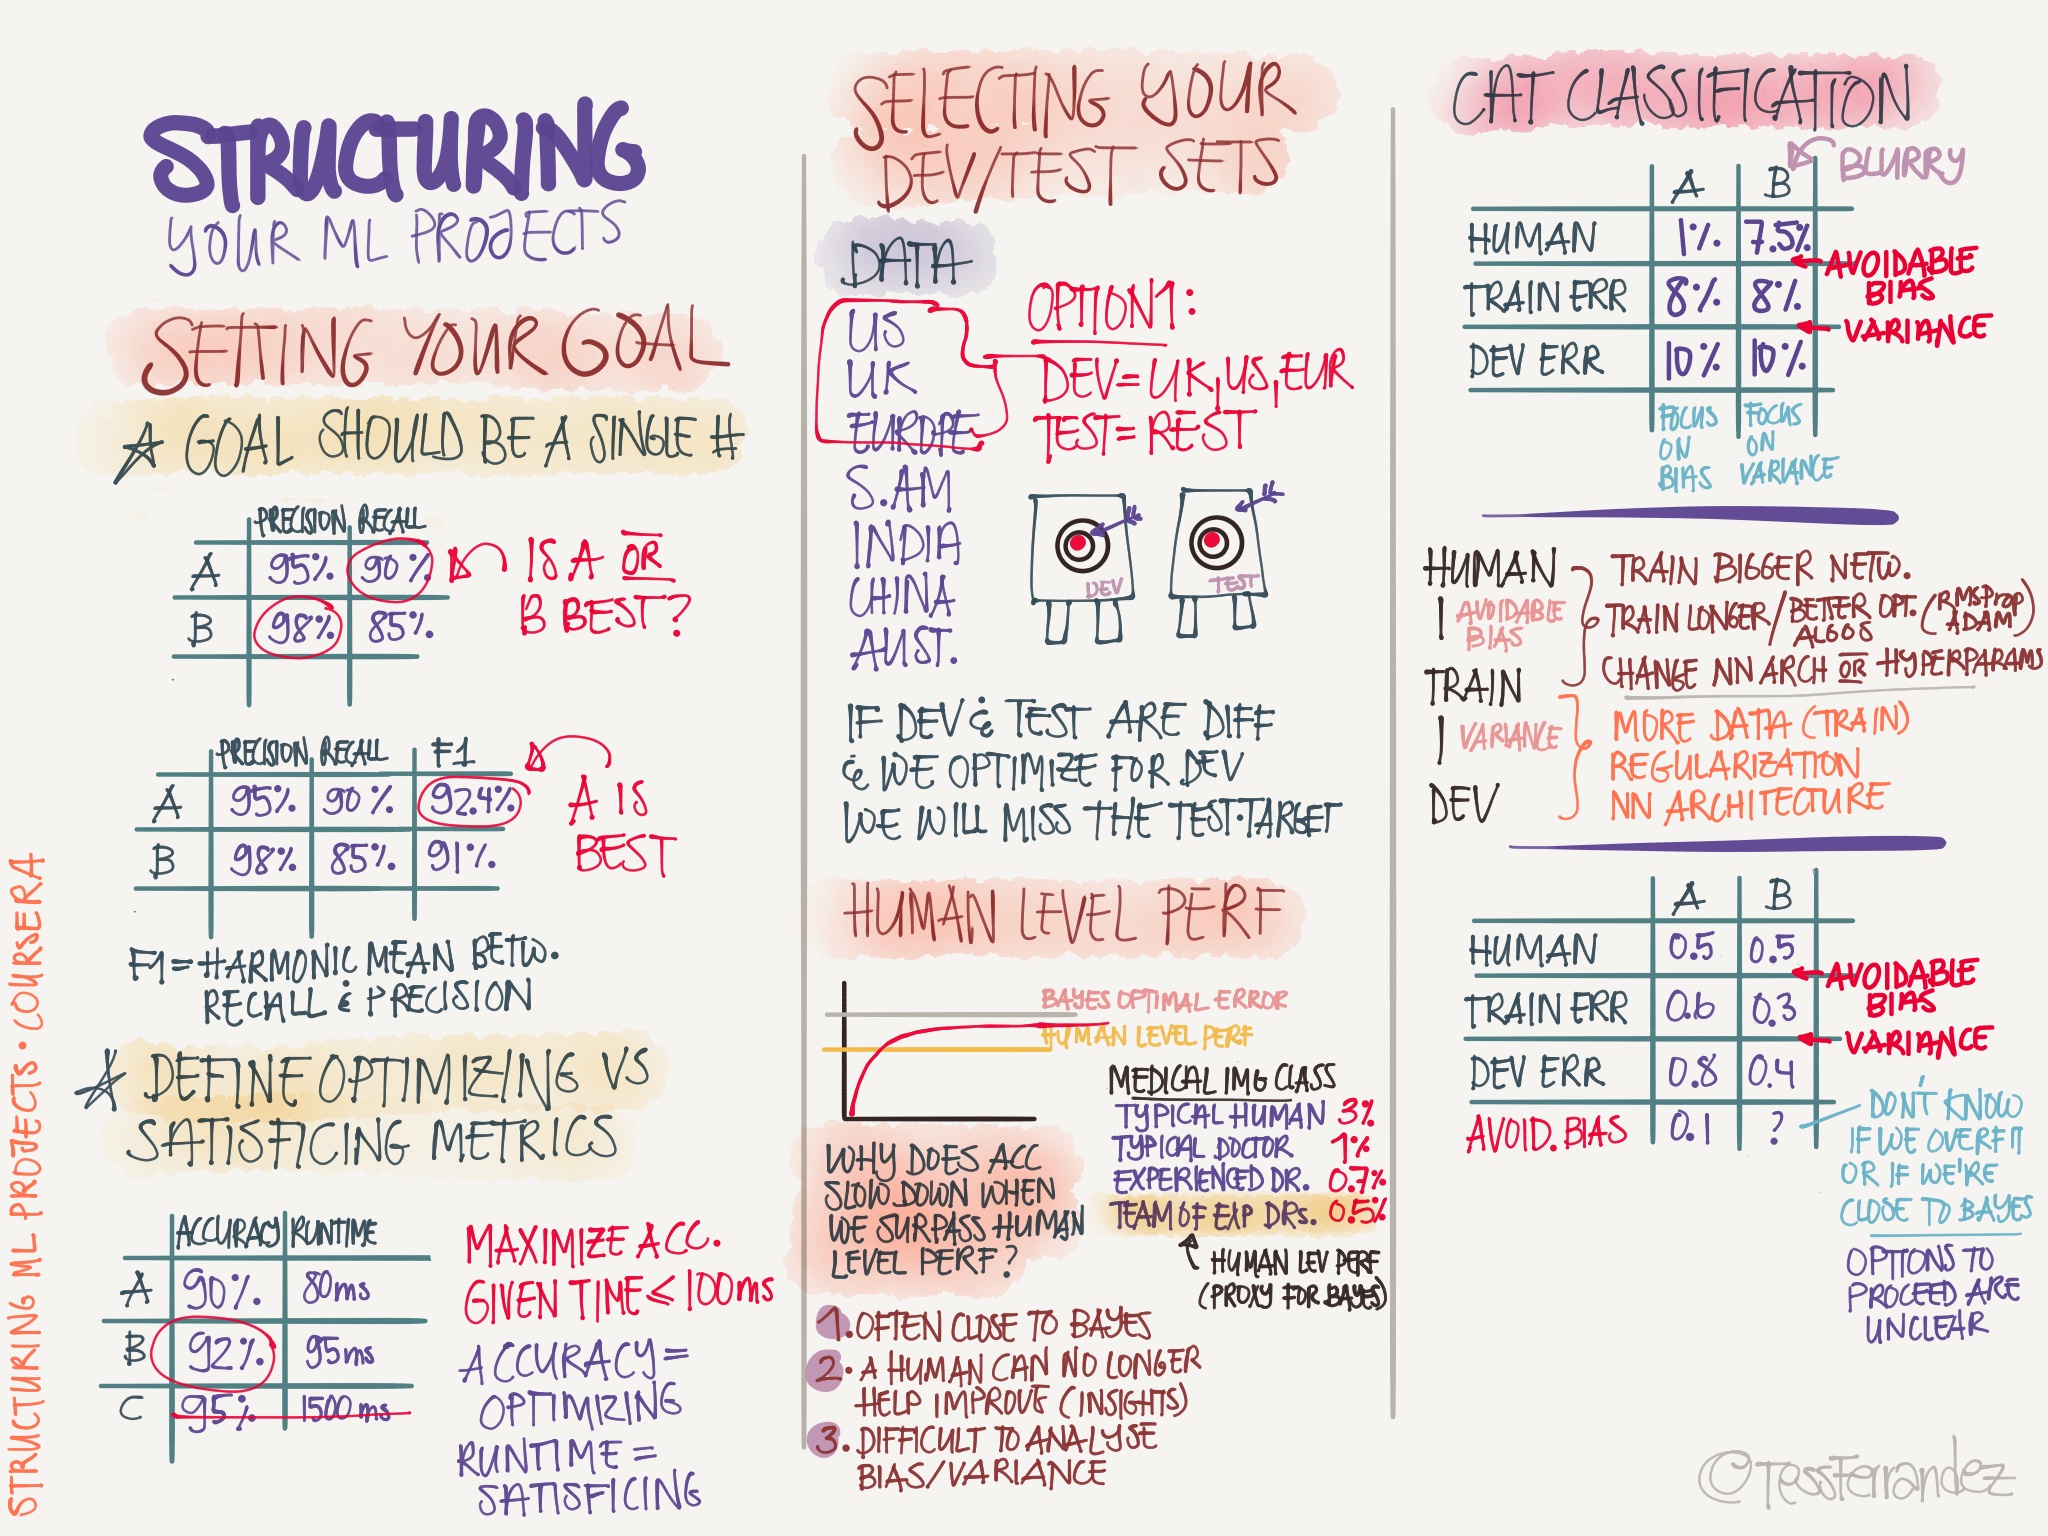 STRUCTURING
YOUR ML PROJECTS
SETTING YOUR GOAL
☆ GOAL SHOULD BE A SINGLE #
PRECISION RECALL
A 95% 90%
B 98% 85%
IS A OR
B BEST?
PRECISION RECALL F1
A 95% 90% 92.4%
B 98% 85% 91%
A IS
BEST
F1 = HARMONIC MEAN BETW.
RECALL & PRECISION
☆ DEFINE OPTIMIZING VS
SATISFICING METRICS
ACCURACY RUNTIME
A 90% 80ms
B 92% 95ms
C 95% 1500 ms
MAXIMIZE ACC.
GIVEN TIME ≤ 100ms
ACCURACY =
OPTIMIZING
RUNTIME =
SATISFICING
STRUCTURING ML PROJECTS · COURSERA
SELECTING YOUR
DEV/TEST SETS
DATA
US
UK
EUROPE
S.AM
INDIA
CHINA
AUST.
OPTION1:
DEV = UK, US, EUR
TEST = REST
DEV
TEST
IF DEV & TEST ARE DIFF
& WE OPTIMIZE FOR DEV
WE WILL MISS THE TEST·TARGET
HUMAN LEVEL PERF
BAYES OPTIMAL ERROR
HUMAN LEVEL PERF
MEDICAL IMG CLASS
TYPICAL HUMAN 3%
TYPICAL DOCTOR 1%
EXPERIENCED DR. 0.7%
TEAM OF EXP DRs. 0.5%
HUMAN LEV PERF
(PROXY FOR BAYES)
WHY DOES ACC
SLOW DOWN WHEN
WE SURPASS HUMAN
LEVEL PERF?
1. OFTEN CLOSE TO BAYES
2. A HUMAN CAN NO LONGER
HELP IMPROVE (INSIGHTS)
3. DIFFICULT TO ANALYSE
BIAS/VARIANCE
CAT CLASSIFICATION
BLURRY
A B
HUMAN 1% 7.5%
AVOIDABLE
BIAS
TRAIN ERR 8% 8%
VARIANCE
DEV ERR 10% 10%
FOCUS
ON
BIAS
FOCUS
ON
VARIANCE
HUMAN
AVOIDABLE
BIAS
TRAIN
VARIANCE
DEV
TRAIN BIGGER NETW.
TRAIN LONGER / BETTER OPT. ALGOS (RMSProp ADAM)
CHANGE NN ARCH OR HYPERPARAMS
MORE DATA (TRAIN)
REGULARIZATION
NN ARCHITECTURE
A B
HUMAN 0.5 0.5
AVOIDABLE
BIAS
TRAIN ERR 0.6 0.3
VARIANCE
DEV ERR 0.8 0.4
AVOID. BIAS 0.1 ?
DON'T KNOW
IF WE OVERFIT
OR IF WE'RE
CLOSE TO BAYES
OPTIONS TO
PROCEED ARE
UNCLEAR
©TessFerrandez